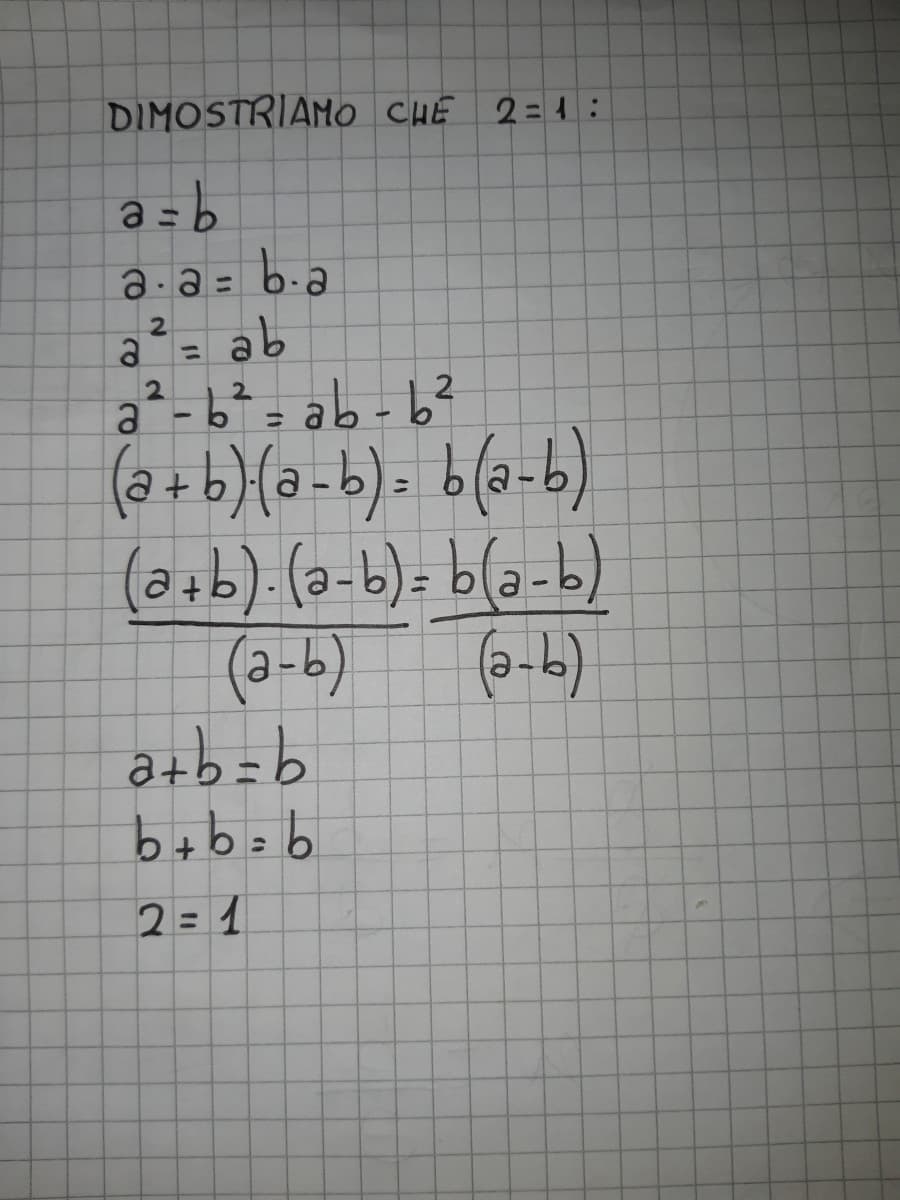 DIMOSTRIAMO CHE 2=1:
a=b
a·a= b·a
a² = ab
a²-b² = ab-b²
(a+b)·(a-b)= b(a-b)
(a+b)·(a-b)= b(a-b)
(a-b) (a-b)
a+b=b
b+b=b
2=1